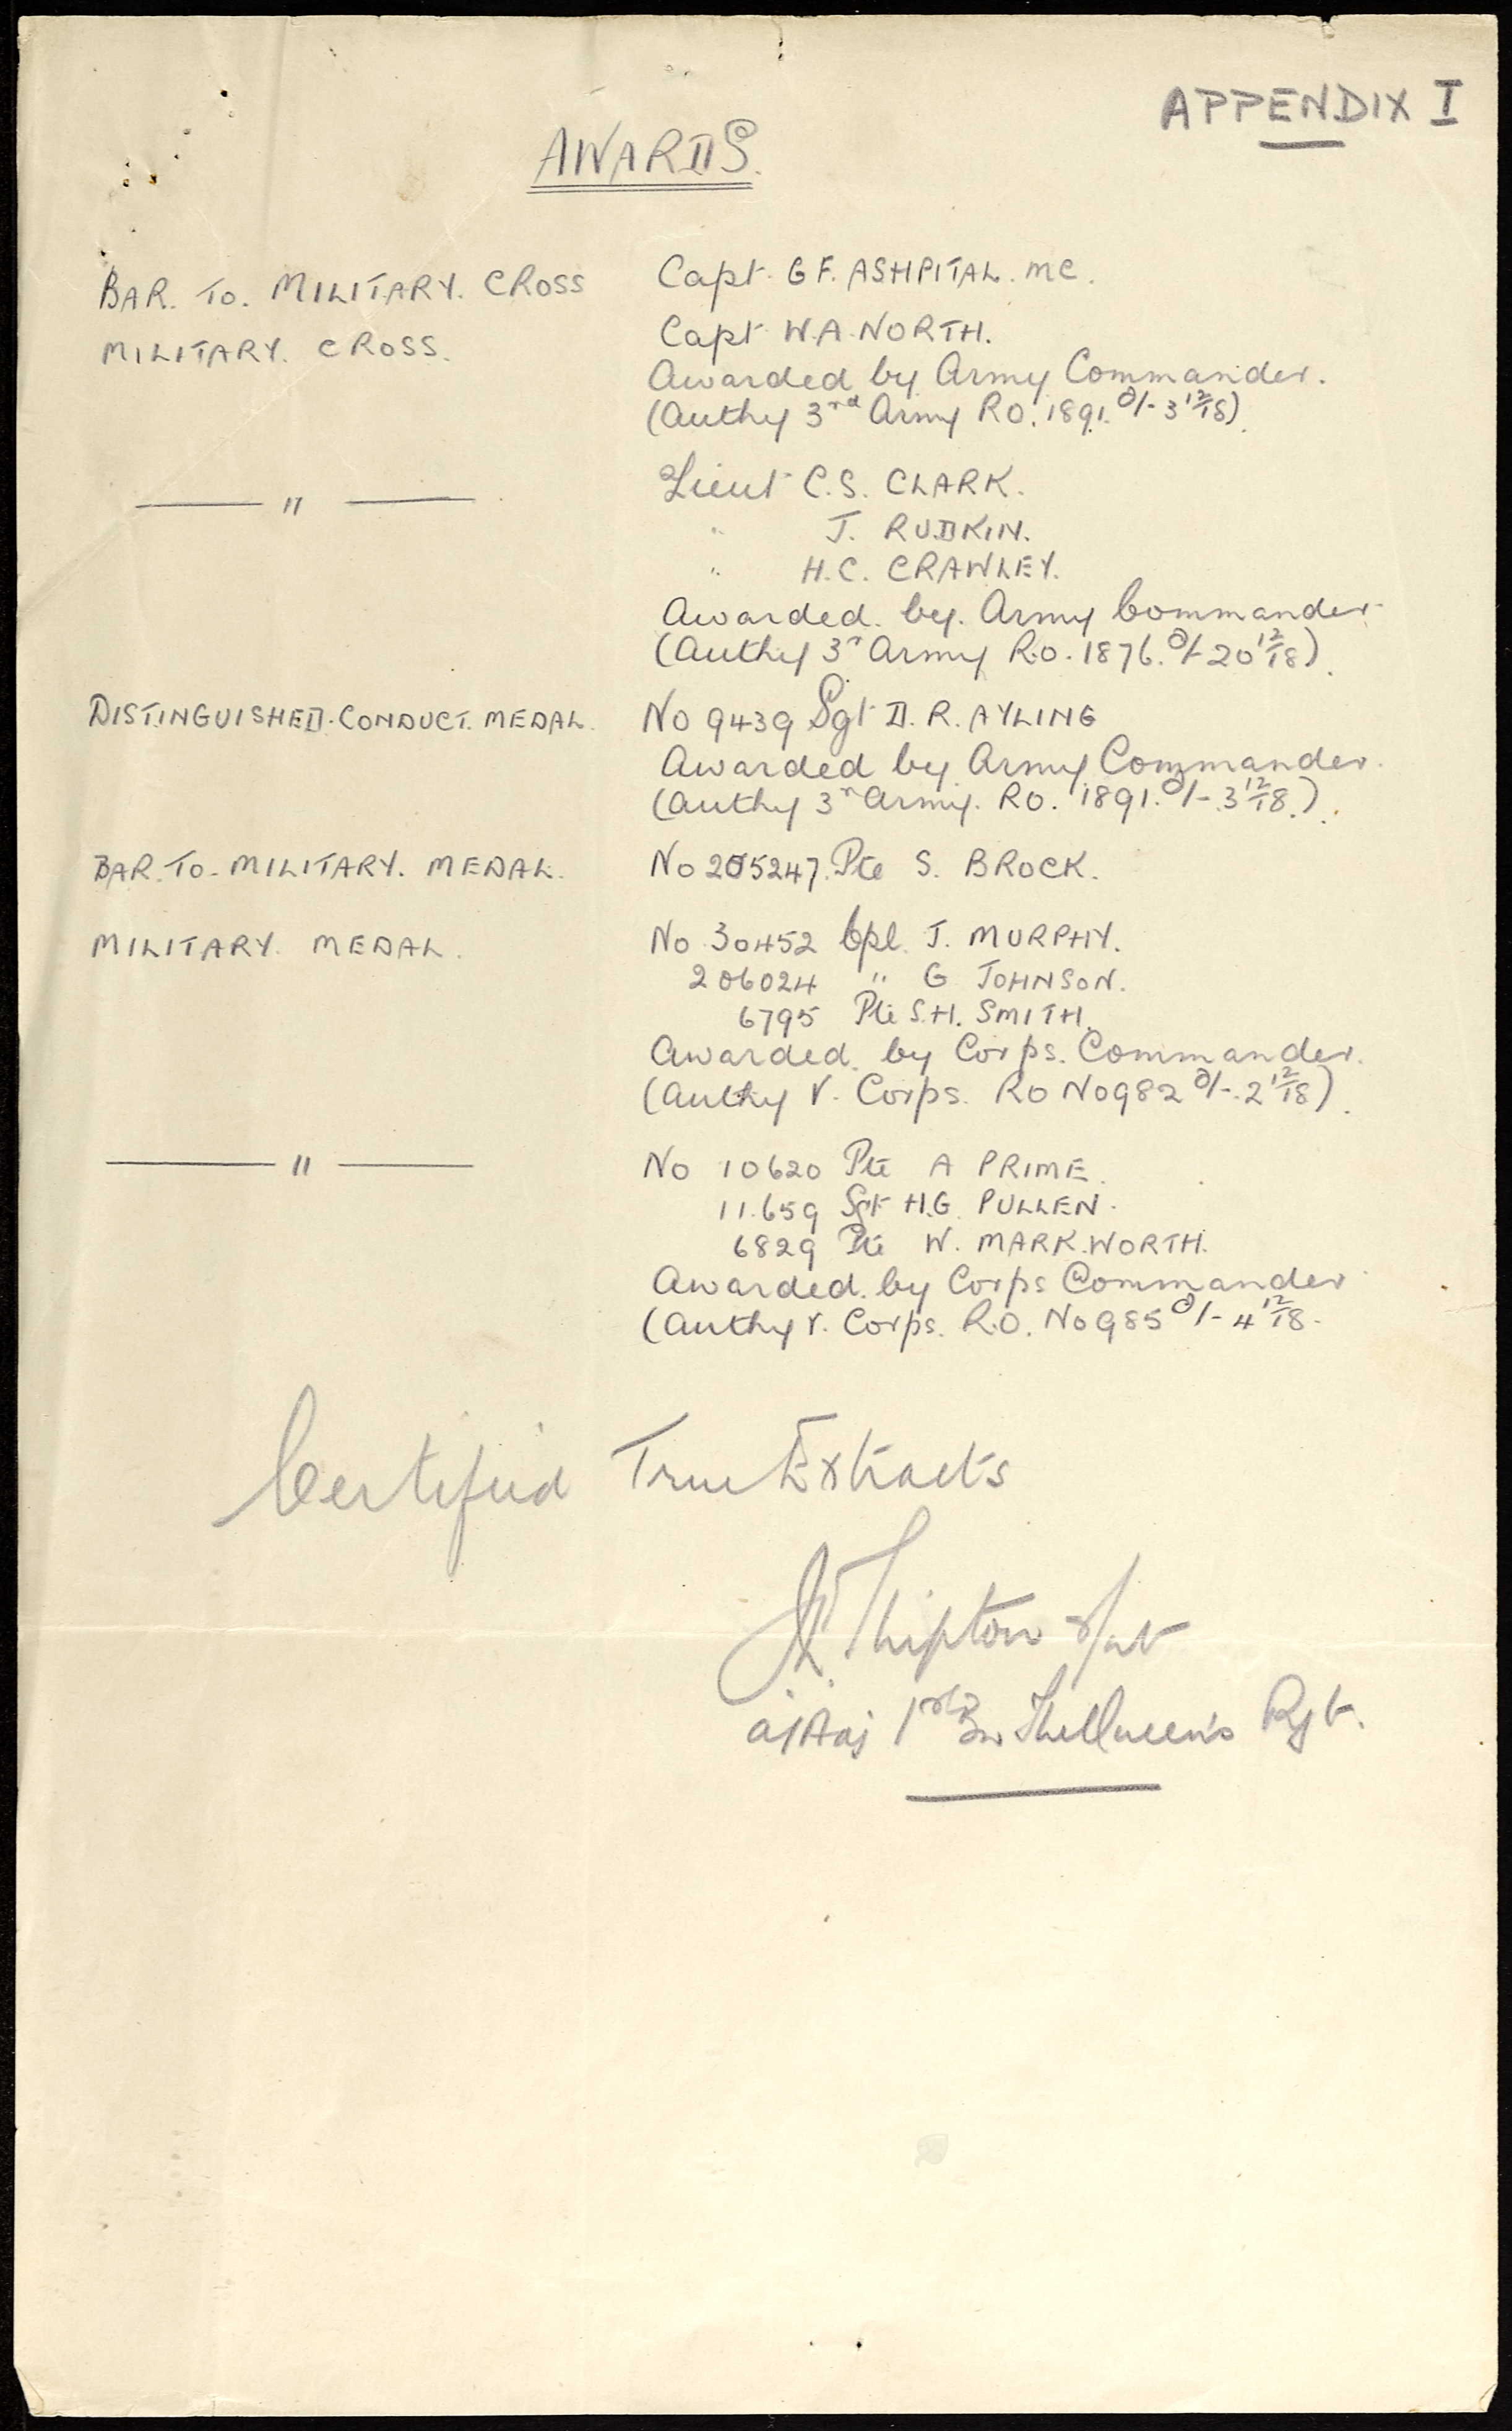 APPENDIX I
AWARDS.
BAR. TO. MILITARY. CROSS Capt. G F. ASHPITAL. MC.
MILITARY. CROSS. Capt W.A. NORTH.
Awarded by Army Commander.
(Authy 3rd Army R.O. 1891. d/- 3 12/18).
—— " —— Lieut C.S. CLARK.
" J. RUDKIN.
" H.C. CRAWLEY.
Awarded. by. Army Commander
(Authy 3r Army R.O. 1876. d/- 20 12/18).
DISTINGUISHED. CONDUCT. MEDAL. No 9439 Sgt D. R. AYLING
Awarded by Army Commander.
(Authy 3r Army. RO. 1891. d/- 3 12/18.).
BAR. TO. MILITARY. MEDAL. No 205247. Pte S. BROCK.
MILITARY. MEDAL. No 30452 Cpl. J. MURPHY.
206024 " G JOHNSON.
6795 Pte S.H. SMITH.
Awarded. by Corps. Commander.
(Authy V. Corps. RO No 982 d/-. 2 12/18).
—— " —— No 10620 Pte A PRIME.
11.659 Sgt H.G. PULLEN.
6829 Pte W. MARKWORTH.
Awarded. by Corps Commander
(Authy V. Corps. R.O. No 985 d/- 4 12/18.
Certified True Extracts
a/Adj 1st Bn The Queen's Rgt.